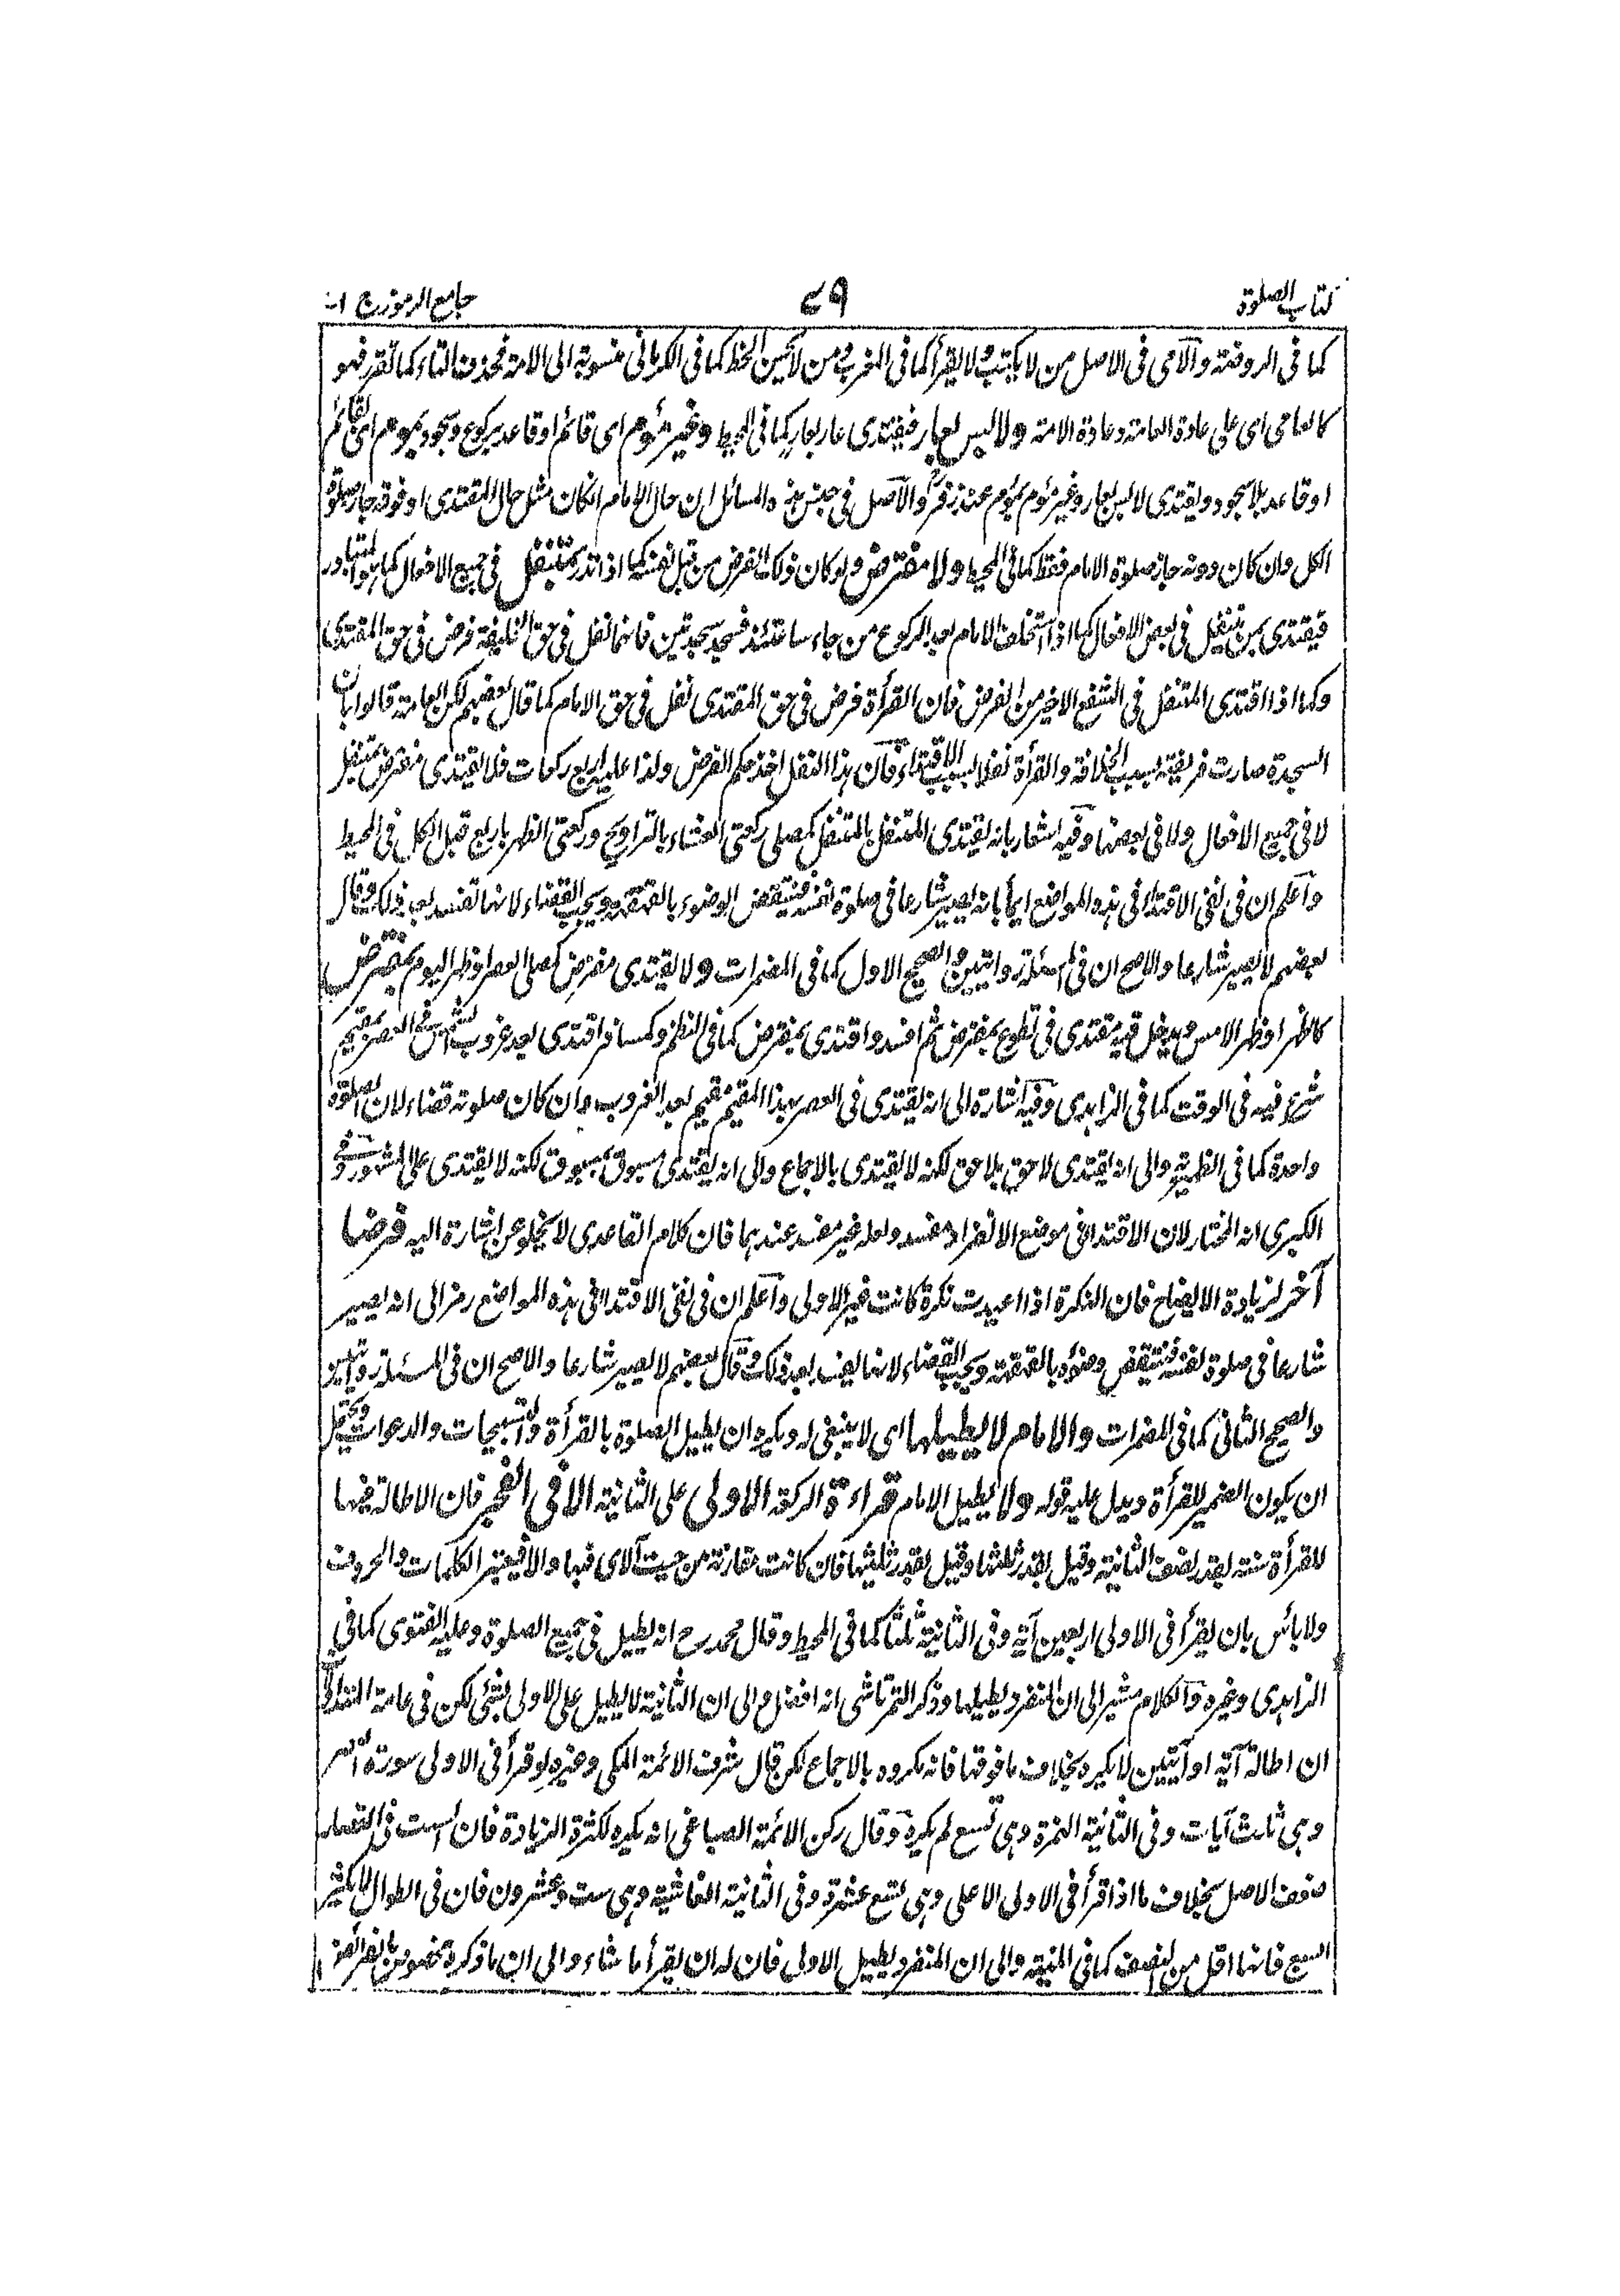 كتاب الصلوة
٧٩
جامع الرموز ج ١
كما فى الروضة والامى فى الاصل من لا يكتب ولا يقرأ كما فى المغرب من لا يحسن الخط كما فى الكرمانى منسوبة الى الامة فحذف التاء كما تقرر فهو
كالعامى اى على عادة العامة وعادة الامة ولا لابس بعار فيقتدى عار بعار كما فى المحيط وغير مؤم اى قائم او قاعد بركوع وسجود بموم اى قائم
او قاعد بلا سجود ويقتدى لابس بعار وغير مؤم بموم عند زفر والاصل فى جنس هذه المسائل ان حال الامام ان كان مثل حال المقتدى او فوقه جاز صلوة
الكل وان كان دونه جاز صلوة الامام فقط كما فى المحيط ولا مفترض ولو كان ذلك الفرض من قبل نفسه كما اذا نذر بمتنفل فى جميع الافعال كما هو المتبادر
فيقتدى بمن يتنفل فى بعض الافعال كما اذا استخلف الامام بعد الركوع من جاء ساعتئذ فسجد سجدتين فانهما نفل فى حق الخليفة فرض فى حق المقتدى
وكما اذا اقتدى المتنفل فى الشفع الاخير من الفرض فان القرأة فرض فى حق المقتدى نفل فى حق الامام كما قال بعضهم لكن العامة قالوا بان
السجدة صارت فريضة بسبب الخلافة والقرأة نفلا بسبب الاقتداء فان هذا النفل اخذ حكم الفرض ولذا عليه اربع ركعات فلا يقتدى مفترض بمتنفل
لا فى جميع الافعال ولا فى بعضها وفيه اشعار بانه يقتدى المتنفل بالمتنفل كمصلى ركعتى العشاء بالتراويح وركعتى الظهر باربع قبل الكل فى المحيط
واعلم ان فى نفى الاقتداء فى هذه المواضع ايماء بانه يصير شارعا فى صلوة نفسه فينتقض الوضوء بالقهقهة ويجب القضاء لانها تفسد بعد ذلك وقال
بعضهم لا يصير شارعا والاصح ان فى المسئلة روايتين والصحيح الاول كما فى المضمرات ولا يقتدى مفترض كمصلى العصر او ظهر اليوم بمفترض
كالظهر او ظهر الامس ويدخل فيه مقتدى فى تطوع بمفترض ثم افسد واقتدى بمفترض كما فى النظم وكمسافر اقتدى بعد غروب الشمس فى العصر بمقيم
شرع فيه فى الوقت كما فى الزاهدى وفيه اشارة الى انه يقتدى فى العصر بهذا المقيم مقيم بعد الغروب وان كان صلوته قضاء لان الصلوة
واحدة كما فى الظهيرية والى انه يقتدى لاحق بلاحق لكنه لا يقتدى بالاجماع والى انه يقتدى مسبوق بمسبوق لكنه لا يقتدى على المشهور وفى
الكبرى انه المختار لان الاقتداء فى موضع الانفراد مفسد ولعله غير مفسد عندهما فان كلام القاعدى لا يخلو عن اشارة اليه فرضا
آخر لزيادة الايضاح فان النكرة اذا اعيدت نكرة كانت غير الاولى واعلم ان فى نفى الاقتداء فى هذه المواضع رمز الى انه يصير
شارعا فى صلوة نفسه فينتقض وضوءه بالقهقهة ويجب القضاء لانها يفسد بعد ذلك وقال بعضهم لا يصير شارعا والاصح ان فى المسئلة روايتين
والصحيح الثانى كما فى المضمرات والامام لا يطيلها اى لا ينبغى له ويكره ان يطيل الصلوة بالقرأة والتسبيحات والدعوات ويحتمل
ان يكون الضمير للقرأة ويدل عليه قوله ولا يطيل الامام قراءة الركعة الاولى على الثانية الا فى الفجر فان الاطالة فيها
للقرأة سنة بقدر نصف الثانية وقيل بقدر ثلثها وقيل بقدر ثلثيها فان كانت مقارنة من حيث الآى فبها والا فيعتبر الكلمات والحروف
ولا بأس بان يقرأ فى الاولى اربعين آية وفى الثانية ثلثا كما فى المحيط وقال محمد رح انه يطيل فى جميع الصلوة وعليه الفتوى كما فى
الزاهدى وغيره والكلام مشير الى ان المنفرد يطيلها وذكر التمرتاشى انه افضل والى ان الثانية لا يطيل على الاولى بشئ لكن فى عامة
ان اطالة آية او آيتين لا يكره بخلاف ما فوقها فانه مكروه بالاجماع لكن قال شرف الائمة المكى وغيره لو قرأ فى الاولى سورة العصر
وهى ثلث آيات وفى الثانية الهمزة وهى تسع لم يكره وقال ركن الائمة الصباغى انه يكره لكثرة الزيادة فان الست فى القصار
ضعف الاصل بخلاف ما اذا قرأ فى الاولى الاعلى وهى تسع عشرة وفى الثانية الغاشية وهى ست وعشرون فان فى الطوال لا يكثر
السبع فانها اقل من النصف كما فى المنية والى ان المنفرد يطيل الاولى فان له ان يقرأ ما شاء والى ان ما ذكره مخصوص بالفرائض